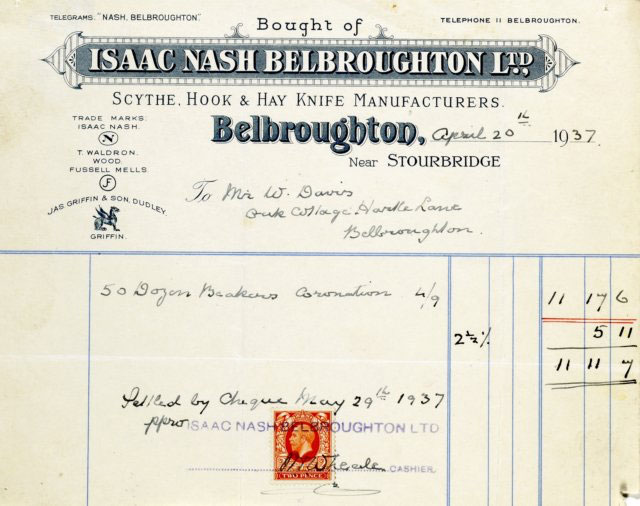 TELEGRAMS: "NASH, BELBROUGHTON."
TELEPHONE 11 BELBROUGHTON.
Bought of
ISAAC NASH BELBROUGHTON LTD.,
SCYTHE, HOOK & HAY KNIFE MANUFACTURERS.
TRADE MARKS:
ISAAC NASH.
N
T. WALDRON.
WOOD.
FUSSELL MELLS.
F
JAS GRIFFIN & SON, DUDLEY.
GRIFFIN.
Belbroughton, April 20th 1937.
Near STOURBRIDGE
To Mr W. Davis
Oak Cottage. Hartle Lane
Belbroughton.
50 Dozen Beakers Coronation 4/9 11 17 6
2½% 5 11
11 11 7
Settled by Cheque May 29th 1937
ppro ISAAC NASH BELBROUGHTON LTD
CASHIER.
TWO PENCE